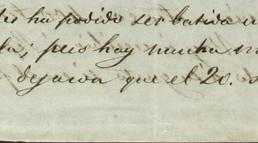 ha podido ser batida
; pero hay mucha
dejara que el 20.